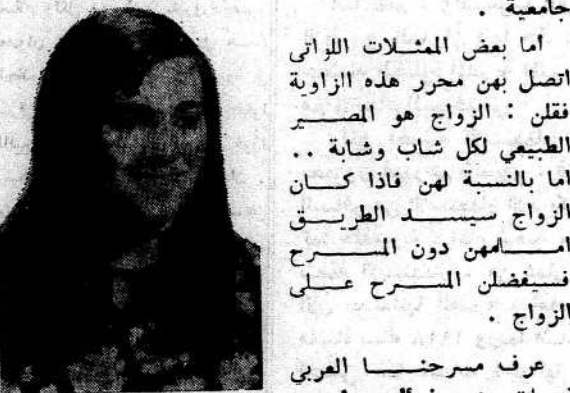 جامعية .
اما بعض الممثلات اللواتى
اتصل بهن محرر هذه الزاوية
فقلن : الزواج هو المصير
الطبيعي لكل شاب وشابة ..
اما بالنسبة لهن فاذا كان
الزواج سيسد الطريق
امامهن دون المسرح
فسيفضلن المسرح على
الزواج .
عرف مسرحنا العربي